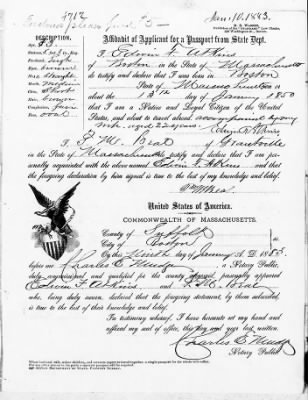 1712
Jan. 10. 1883.
Affidavit of Applicant for a Passport from State Dept.
DESCRIPTION.
I, Edwin F. Atkins
of Boston in the State of Massachusetts
do testify and declare that I was born in Boston
State of Massachusetts on
about the 13th day of January 1850
that I am a Native and Loyal Citizen of the United
States, and about to travel abroad accompanied by my
wife, aged 22 years.
Edwin F. Atkins
I, F. M. Beal of
State of Massachusetts do testify and declare that I am per-
sonally acquainted with the above named Edwin F. Atkins and that
the foregoing declaration by him signed is true to the best of my knowledge and belief.
United States of America.
COMMONWEALTH OF MASSACHUSETTS.
County of Suffolk
City of Boston
By the Ninth day of January A. D. 1883
before me Charles E. a Notary Public,
duly commissioned and qualified for the county aforesaid, personally appeared
Edwin F. Atkins and F. M. Beal
who, being duly sworn, declared that the foregoing statement, by them subscribed,
is true to the best of their knowledge and belief.
In testimony whereof, I have hereunto set my hand and
affixed my seal of office, this day and year last written.
Charles E.
Notary Public.